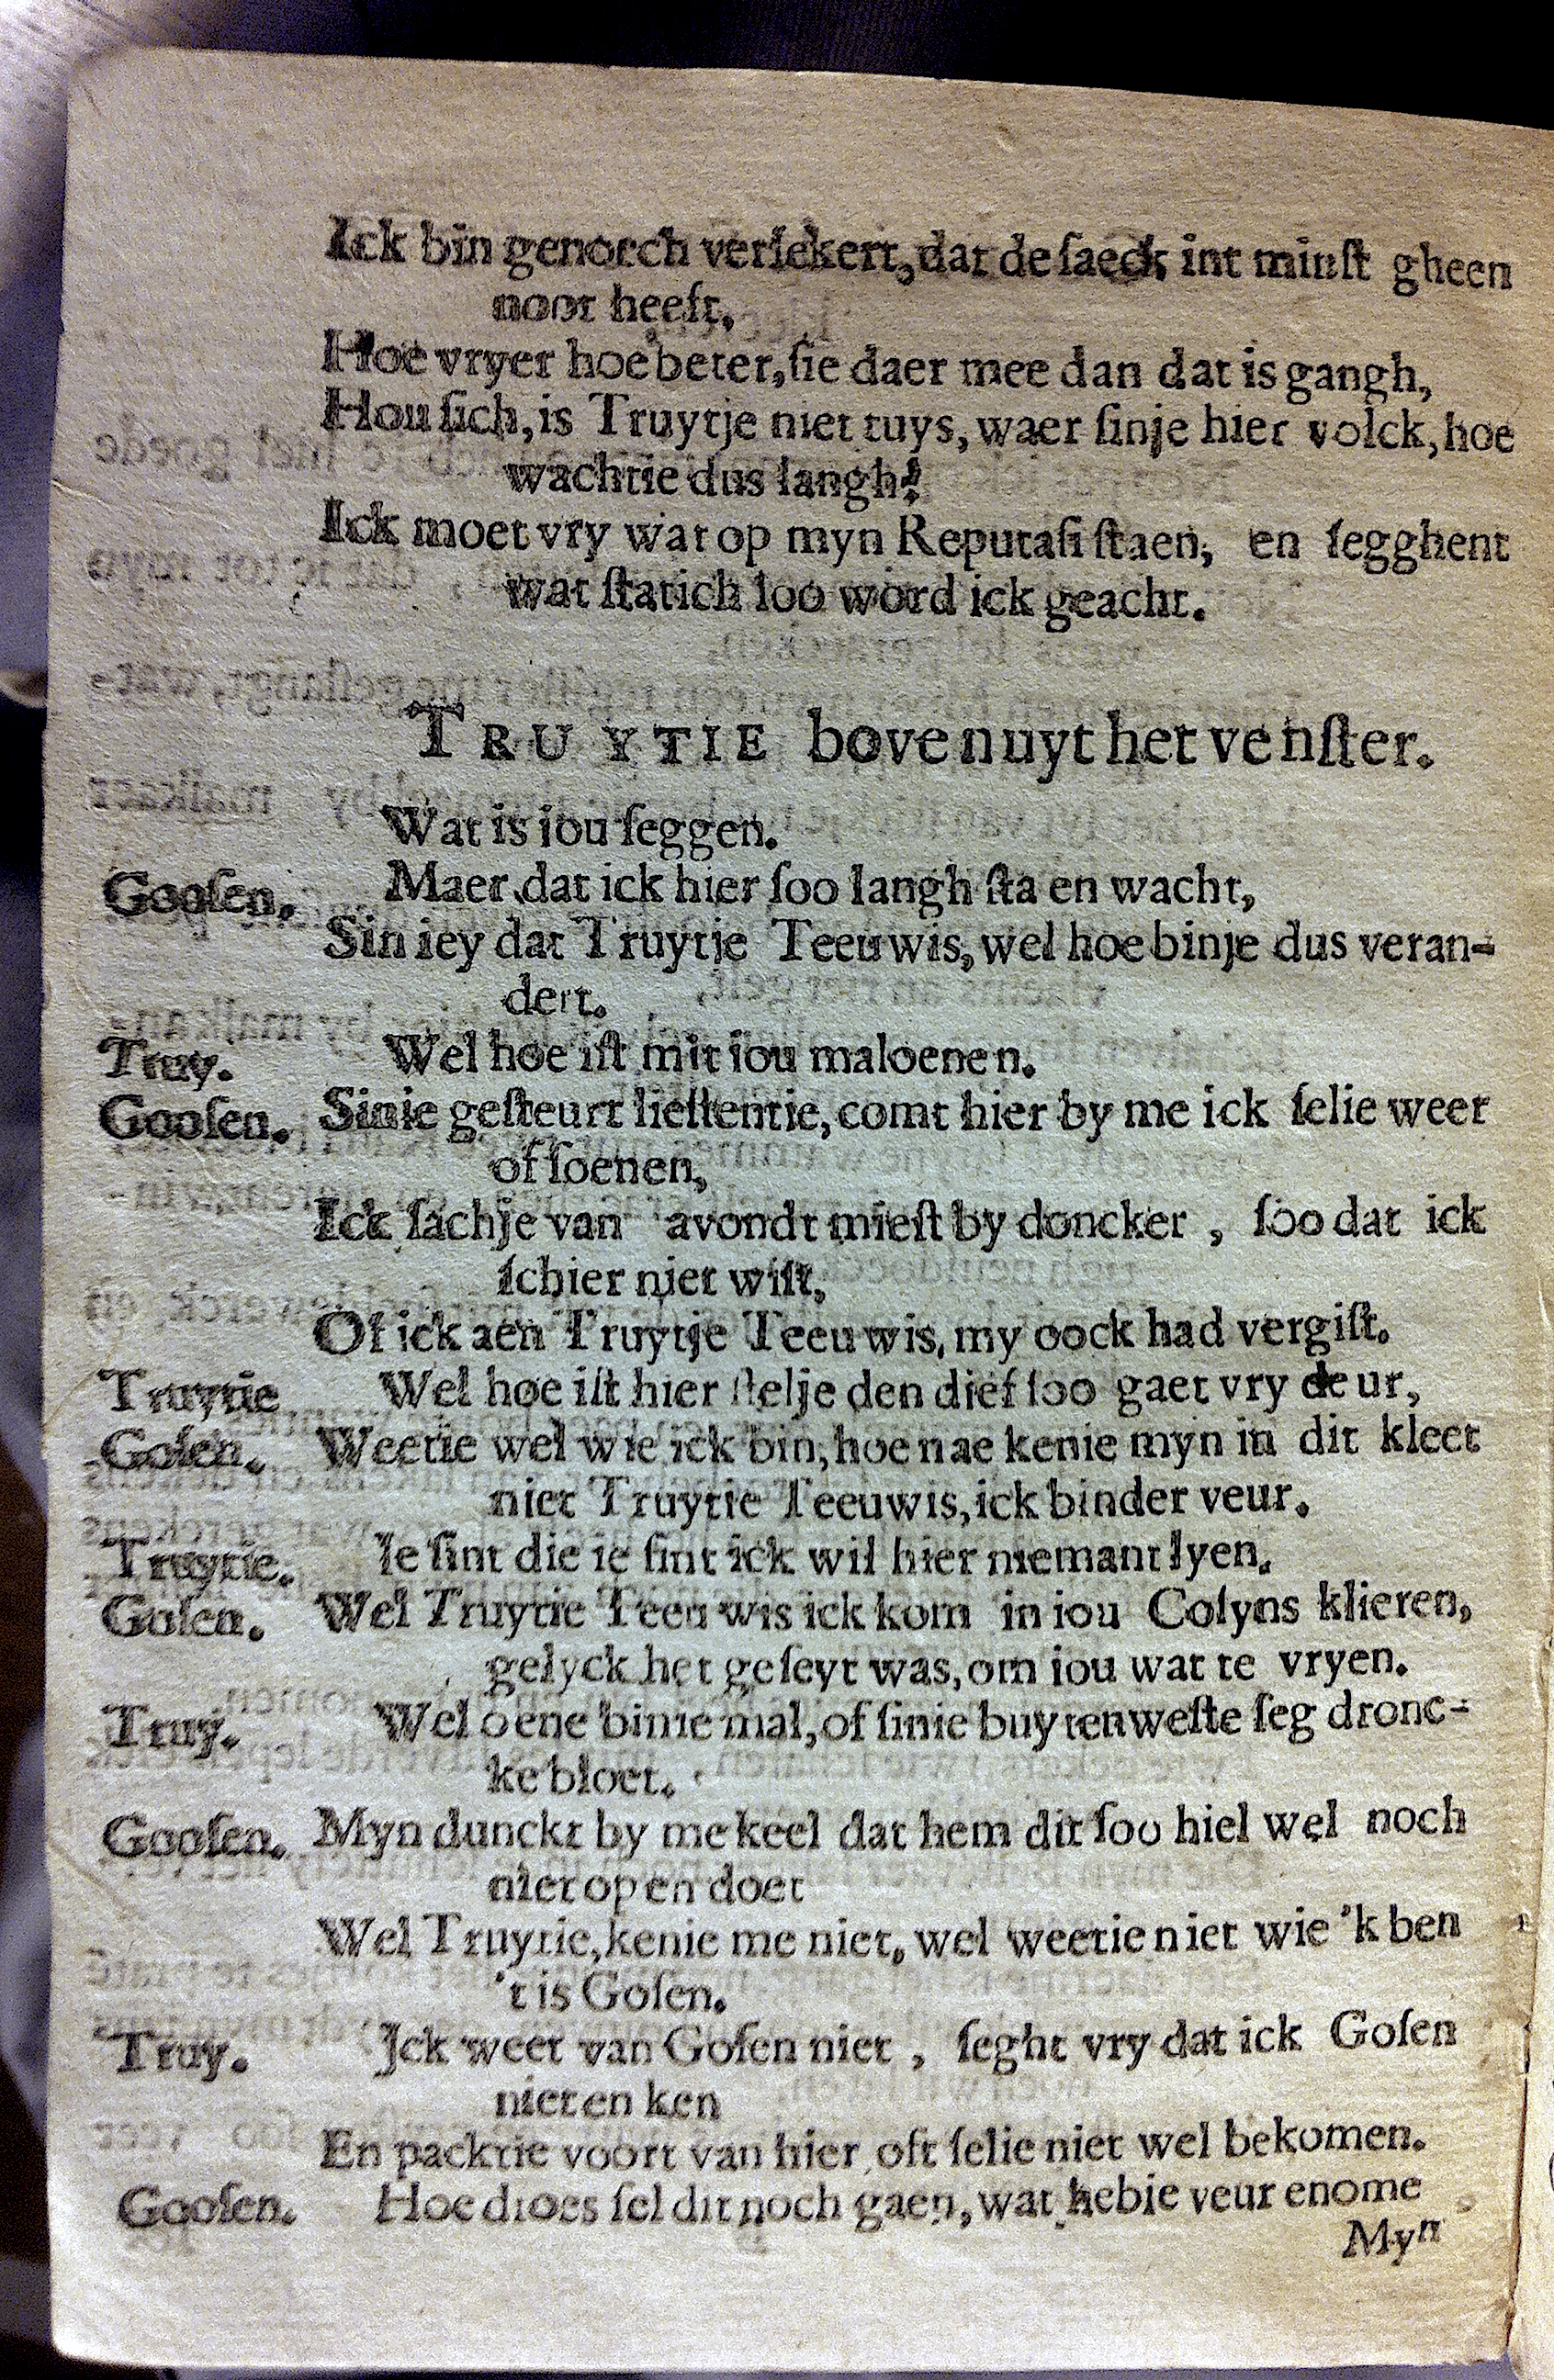 Ick bin genoech verſekert, dat de ſaeck int minſt gheen
noot heeft,
Hoe vryer hoe beter, ſie daer mee dan dat is gangh,
Hou ſich, is Truytje niet tuys, waer ſinje hier volck, hoe
wachtie dus langh?
Ick moet vry wat op myn Reputaſi ſtaen, en ſegghent
wat ſtatich ſoo word ick geacht.
TRUYTIE boven uyt het venſter.
Wat is iou ſeggen.
Gooſen. Maer dat ick hier ſoo langh ſta en wacht,
Sin iey dat Truytje Teeuwis, wel hoe binje dus veran-
dert.
Truy. Wel hoe iſt mit iou maloenen.
Gooſen. Sinie geſteurt lieſtentie, comt hier by me ick ſelie weer
of ſoenen,
Ick ſachje van avondt mieſt by doncker, ſoo dat ick
ſchier niet wiſt,
Of ick aen Truytje Teeuwis, my oock had vergiſt.
Truytie Wel hoe iſt hier ſtelje den dief ſoo gaet vry deur,
Goſen. Weetie wel wie ick bin, hoe nae kenie myn in dit kleet
niet Truytie Teeuwis, ick binder veur.
Truytie. Ie ſint die ie ſint ick wil hier niemant lyen.
Goſen. Wel Truytie Teeuwis ick kom in iou Coſyns klieren,
gelyck het geſeyt was, om iou wat te vryen.
Truy. Wel oene binie mal, of ſinie buytenweſte ſeg dronc-
ke bloet.
Gooſen. Myn dunckt by me keel dat hem dit ſoo hiel wel noch
niet op en doet
Wel Truytie, kenie me niet, wel weetie niet wie 'k ben
't is Goſen.
Truy. Ick weet van Goſen niet, ſeght vry dat ick Goſen
niet en ken
En packtie voort van hier, oft ſelie niet wel bekomen.
Gooſen. Hoe droes ſel dit noch gaen, wat hebie veur enome
Myn